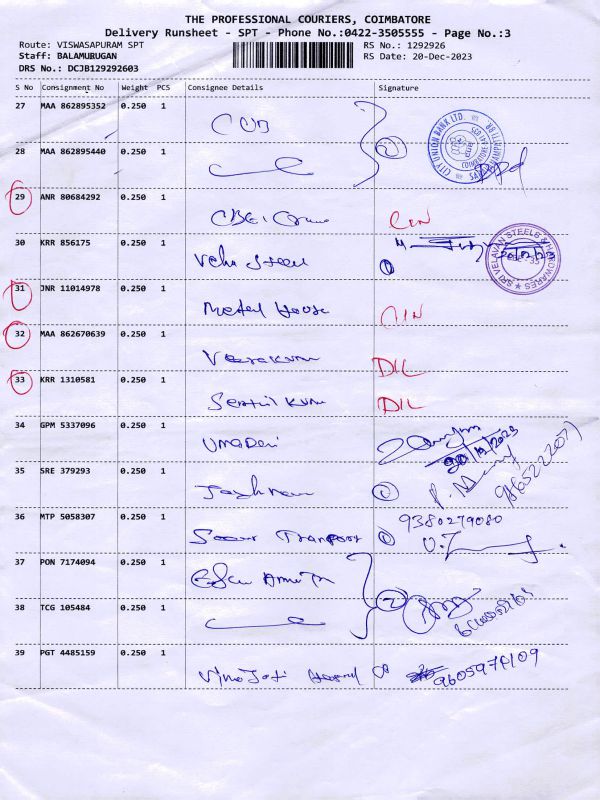 THE PROFESSIONAL COURIERS, COIMBATORE
Delivery Runsheet - SPT - Phone No.:0422-3505555 - Page No.:3
Route: VISWASAPURAM SPT
RS No.: 1292926
Staff: BALAMURUGAN
RS Date: 20-Dec-2023
DRS No.: DCJB129292603
S No Consignment No Weight PCS Consignee Details Signature
27 MAA 862895352 0.250 1
CUB
CITY UNION BANK LTD.
28 MAA 862895440 0.250 1 2
29 ANR 80684292 0.250 1
CIN
30 KRR 856175 0.250 1
Velu Steel 1
SRI VELAVAN STEELS & HARDWARES
31 JNR 11014978 0.250 1
Metal House CIN
32 MAA 862670639 0.250 1
DIL
33 KRR 1310581 0.250 1
Senthil Kum DIL
34 GPM 5337096 0.250 1
Uma Devi
20/12/2023
35 SRE 379293 0.250 1
1
36 MTP 5058307 0.250 1
9380279080
Transport 1
37 PON 7174094 0.250 1
38 TCG 105484 0.250 1 2
39 PGT 4485159 0.250 1